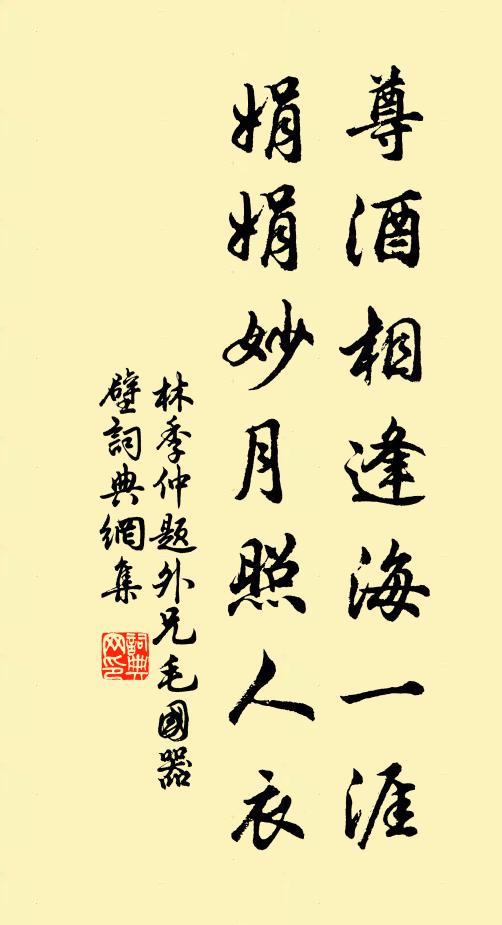 尊酒相逢海一涯
娟娟妙月照人衣
林季仲題外兄毛國器
壁詞典網集
詞典网印